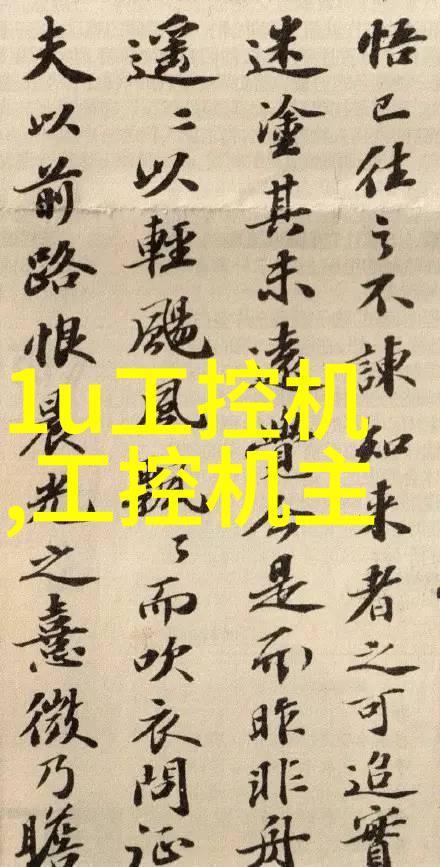 悟已往之不諫知来者之可追實
迷塗其未遠覺今是而昨非舟
遥〻以輕颺風飄〻而吹衣問征
夫以前路恨晨光之憙微乃瞻
1u工控机
,工控机主